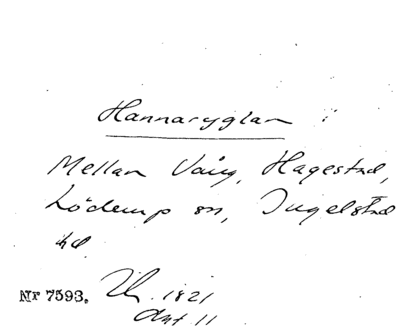 Hannaryglan
Mellan Vång, Hagestad,
Löderup sn, Ingelstad
hd
Nr 7593. 1821
Akt 11